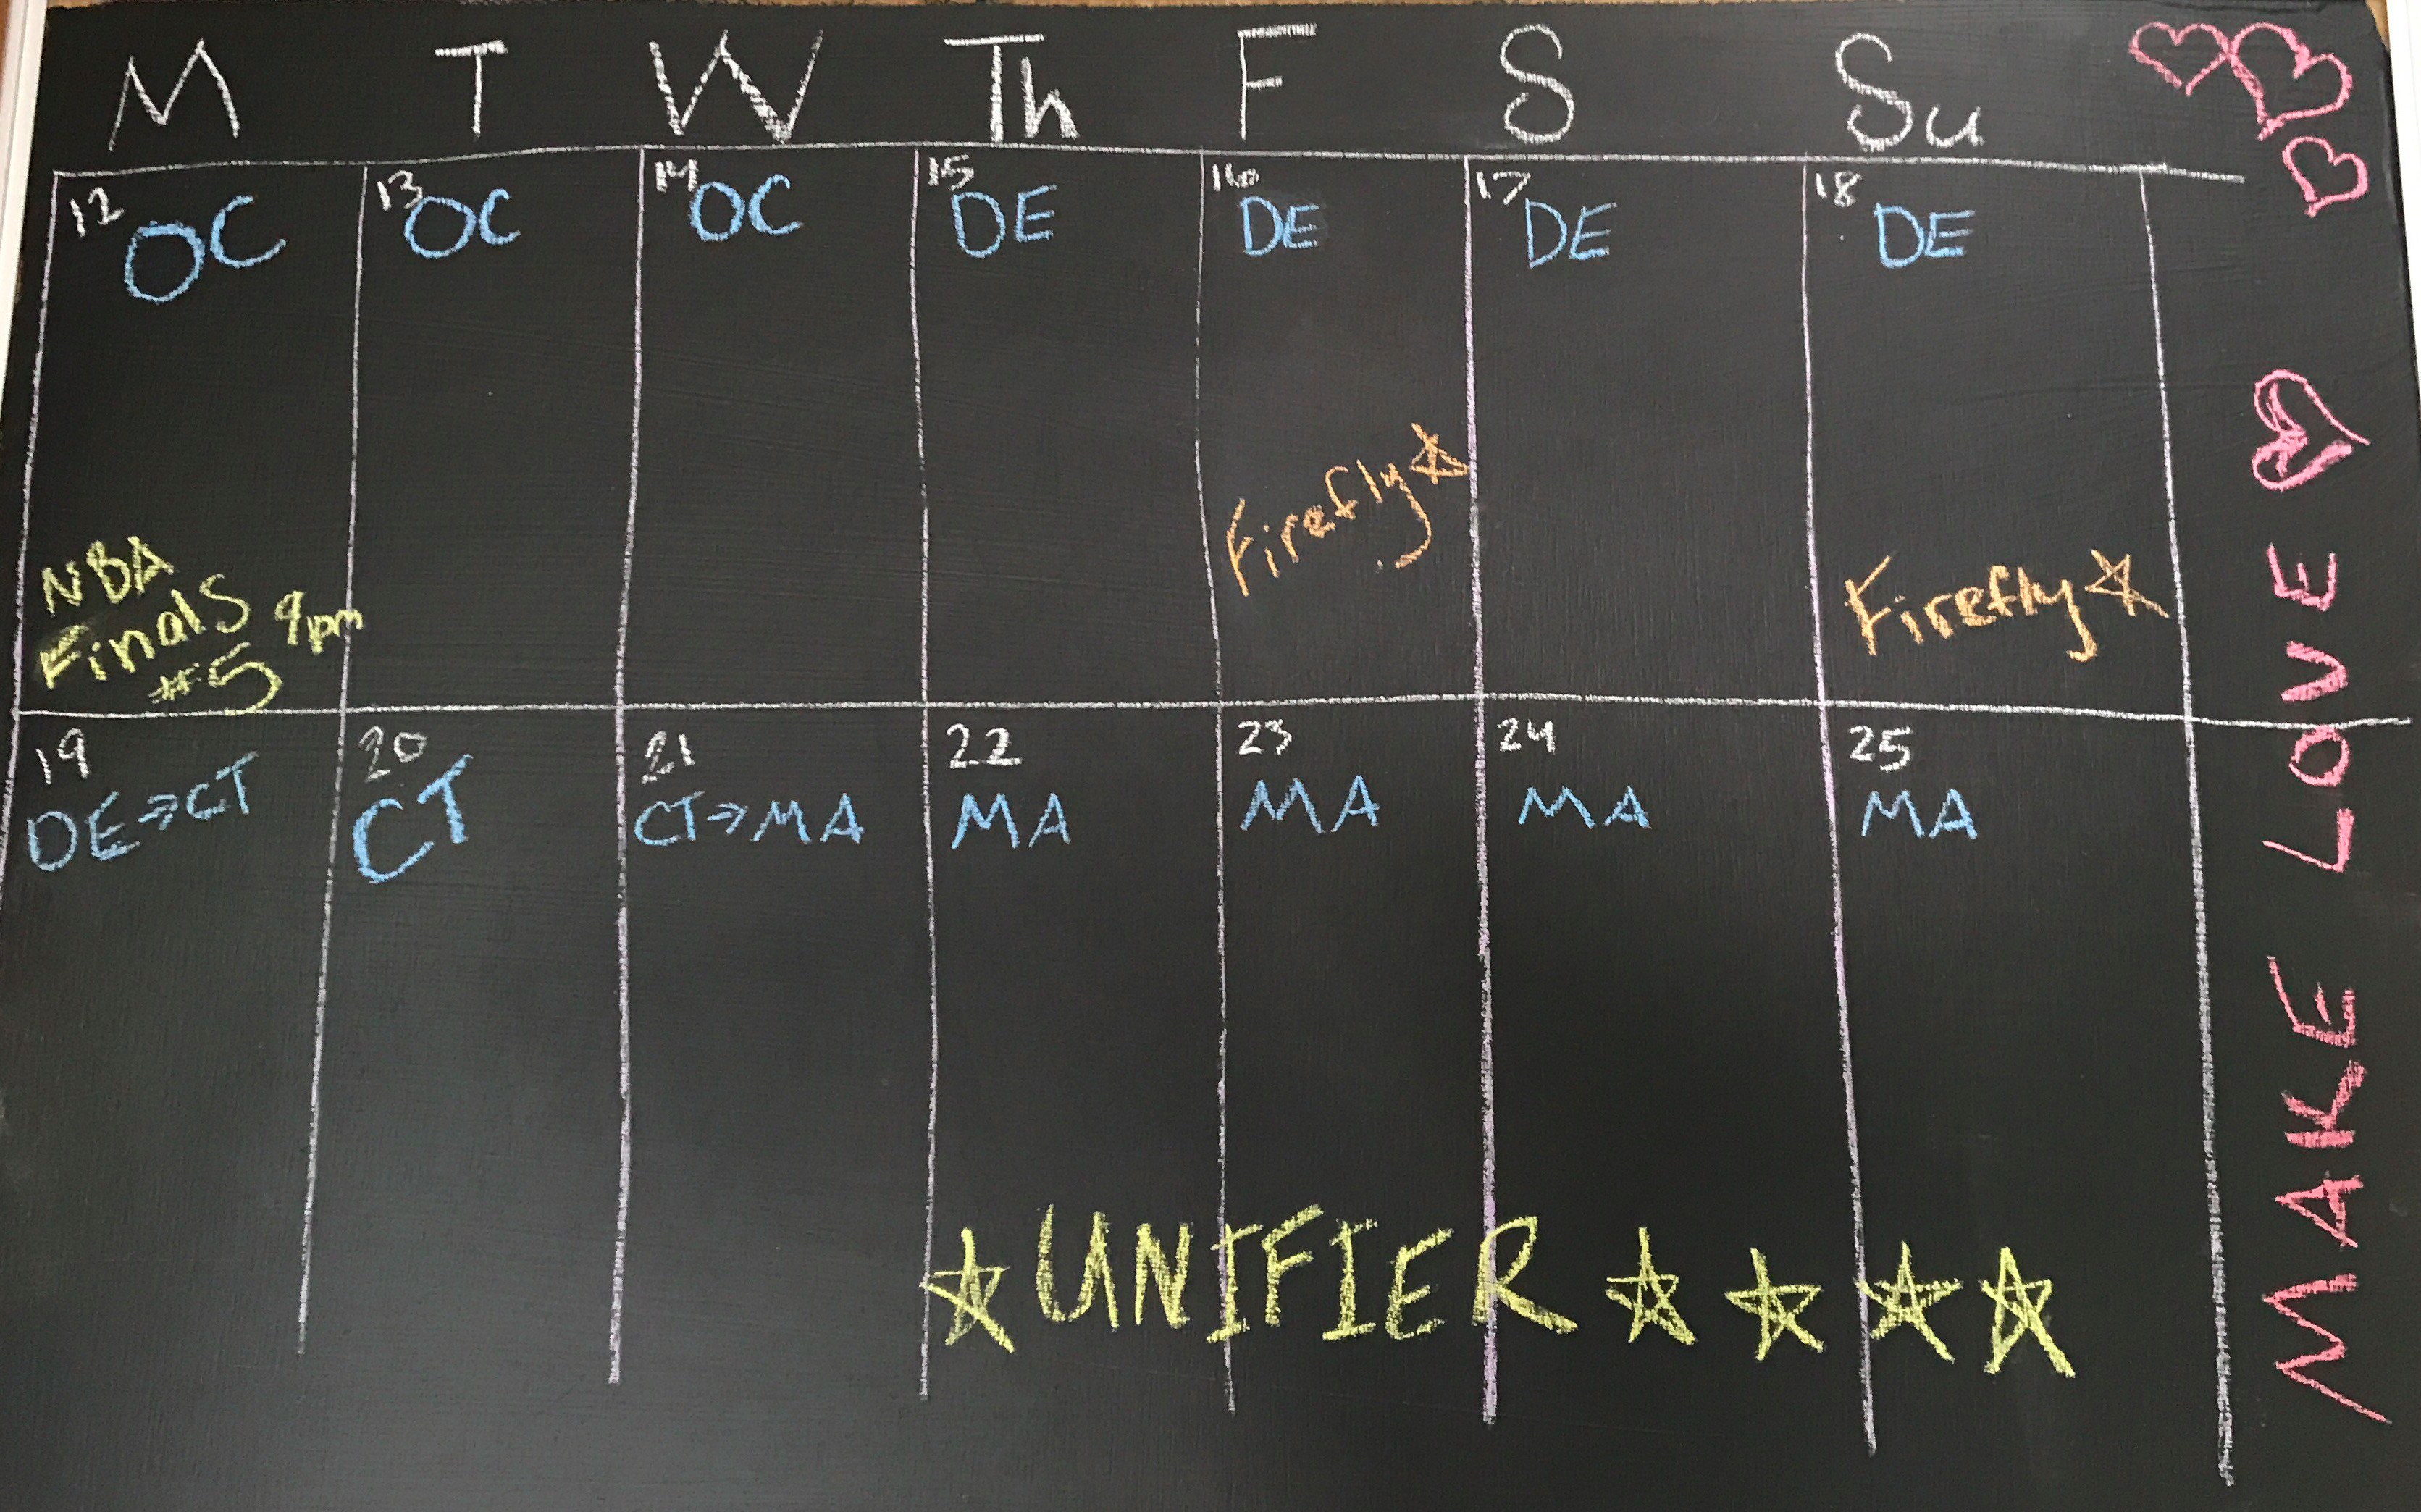 M T W Th F S Su
12 13 14 15 16 17 18
OC OC OC DE DE DE DE
NBA
Finals 9pm
#5
Firefly
Firefly
19 20 21 22 23 24 25
DE→CT CT CT→MA MA MA MA MA
UNIFIER
MAKE LOVE